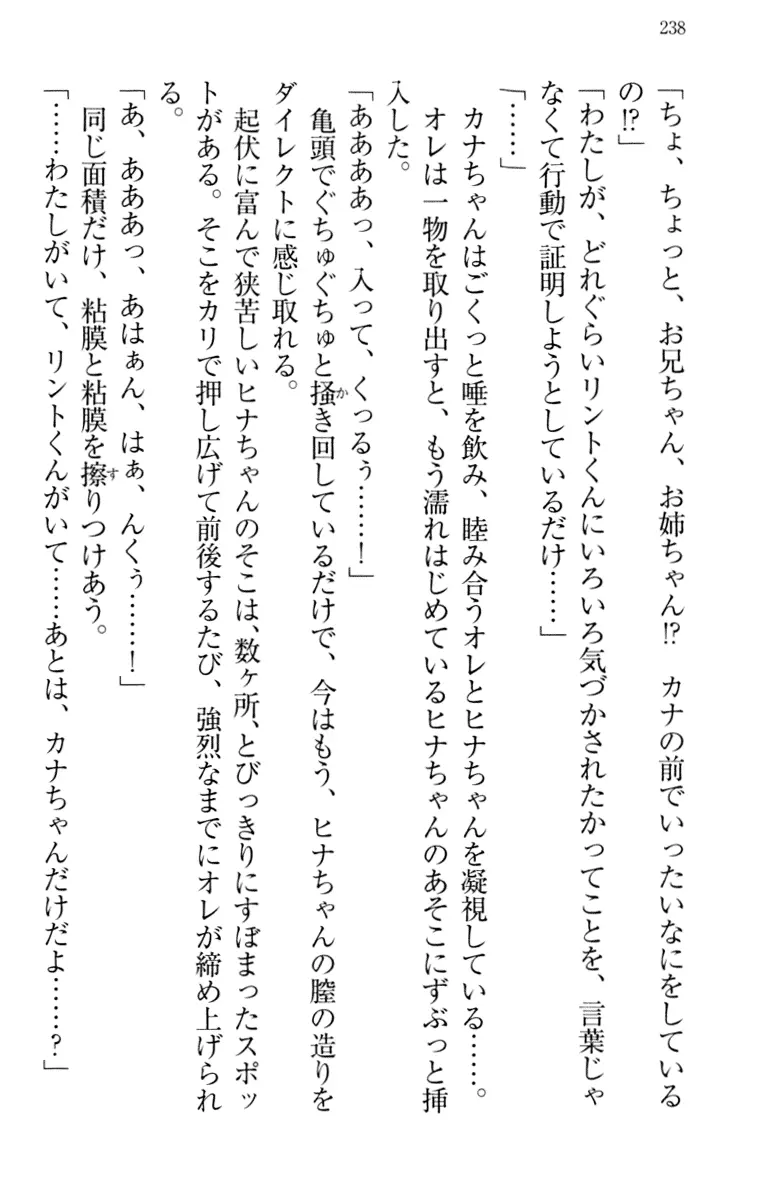 238
「ちょ、ちょっと、お兄ちゃん、お姉ちゃん!?　カナの前でいったいなにをしている
の!?」
「わたしが、どれぐらいリントくんにいろいろ気づかされたかってことを、言葉じゃ
なくて行動で証明しようとしているだけ……」
「……」
　カナちゃんはごくっと唾を飲み、睦み合うオレとヒナちゃんを凝視している……。
　オレは一物を取り出すと、もう濡れはじめているヒナちゃんのあそこにずぶっと挿
入した。
「ああああっ、入って、くっるぅ……！」
　亀頭でぐちゅぐちゅと掻き回しているだけで、今はもう、ヒナちゃんの膣の造りを
ダイレクトに感じ取れる。
　起伏に富んで狭苦しいヒナちゃんのそこは、数ヶ所、とびっきりにすぼまったスポッ
トがある。そこをカリで押し広げて前後するたび、強烈なまでにオレが締め上げられ
る。
「あ、あああっ、あはぁん、はぁ、んくぅ……！」
　同じ面積だけ、粘膜と粘膜を擦りつけあう。
「……わたしがいて、リントくんがいて……あとは、カナちゃんだけだよ……？」